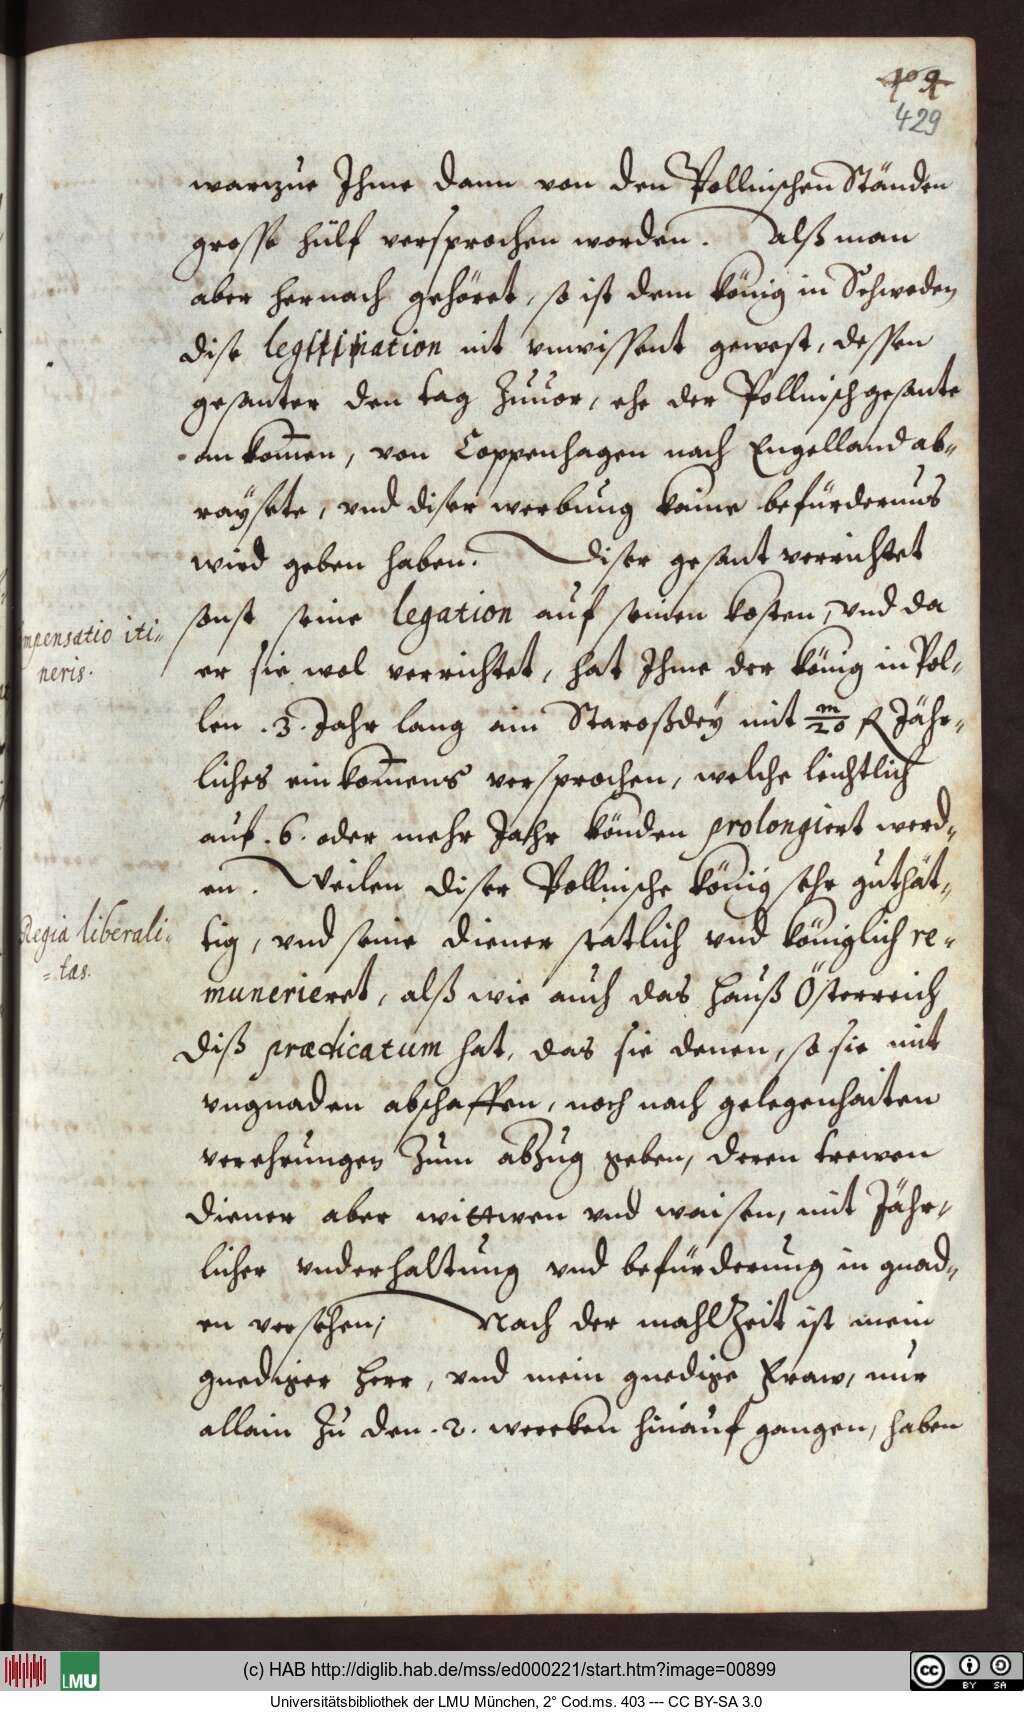 429
warzue Ihme dann von den Pollnischen Ständen
grosse hülf versprochen worden. Alß man
aber hernach gehöret, so ist dem König in Schweden
dise legitimation nit unwissent gewest, dessen
gesanter den tag Zuuor, ehe der Pollnisch gesante
ankom̄en, von Coppenhagen nach Engelland ab-
raÿsete, vnd diser werbung kaine befürdernus
wird geben haben. Diser gesant verrichtet
sonst seine legation auf seinen kosten, vnd da
mpensatio iti-
neris.
er sie wol verrichtet, hat Ihme der König in Pol-
len .3. Jahr lang ain Staroßdeÿ mit m/20 fl Jähr-
liches einkom̄ens versprochen, welche leichtlich
auf .6. oder mehr Jahr könden prolongiert werd-
en. Weilen diser Pollnische König sehr guthät-
Regia liberali-
-tas.
tig, vnd seine diener statlich vnd königlich re-
munerieret, alß wie auch das Hauß Österreich
diß prædicatum hat, das sie denen, so sie mit
vngnaden abschaffen, noch nach gelegenhaiten
verehrungen Zum abZug geben, deren trewen
diener aber wittwen vnd waisen, mit Jähr-
licher vnderhaltung vnd befürderung in gnad-
en versehen; Nach der mahlZeit ist mein
gnediger Herr, vnd mein gnedige Fraw, nur
allain Zu den .2. wercken hinauf gangen, haben
(c) HAB http://diglib.hab.de/mss/ed000221/start.htm?image=00899
LMU
BY SA
Universitätsbibliothek der LMU München, 2° Cod.ms. 403 --- CC BY-SA 3.0